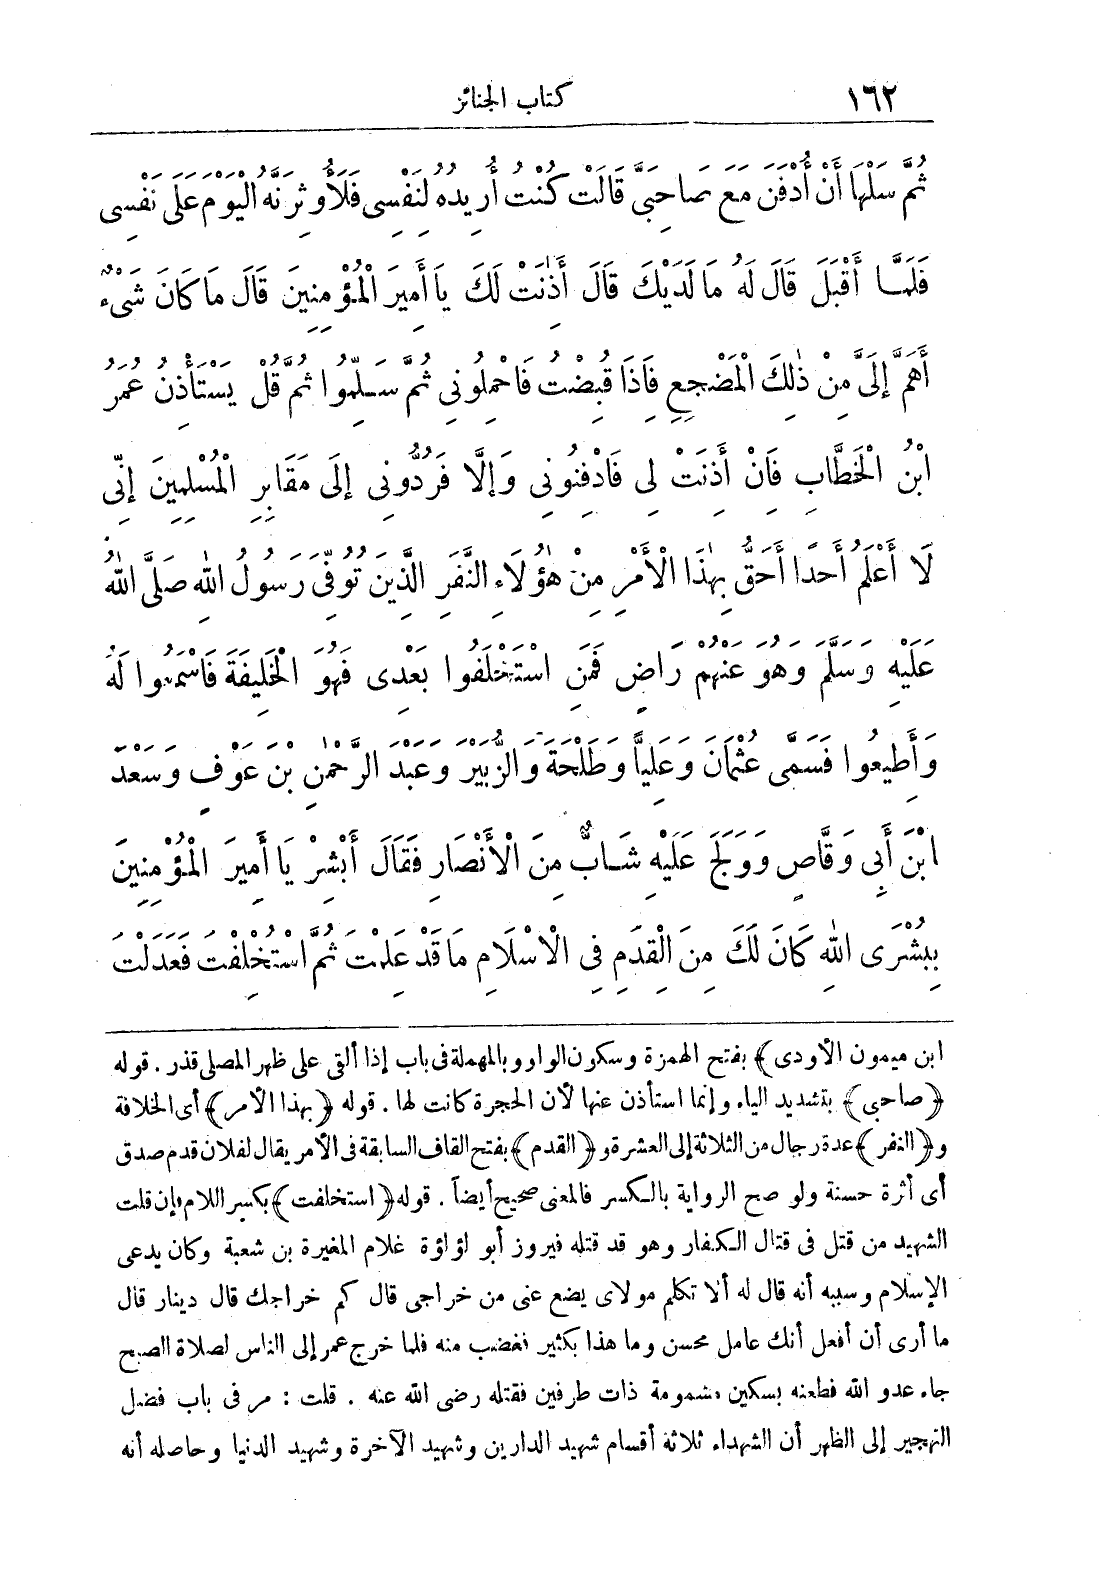 ١٦٢ كتاب الجنائز
ثُمَّ سَلْهَا أَنْ أُدْفَنَ مَعَ صَاحِبَىَّ قَالَتْ كُنْتُ أُرِيدُهُ لِنَفْسِى فَلَأُوثِرَنَّهُ الْيَوْمَ عَلَى نَفْسِى
فَلَمَّا أَقْبَلَ قَالَ لَهُ مَا لَدَيْكَ قَالَ أَذِنَتْ لَكَ يَا أَمِيرَ الْمُؤْمِنِينَ قَالَ مَا كَانَ شَىْءٌ
أَهَمَّ إِلَىَّ مِنْ ذٰلِكَ الْمَضْجَعِ فَاذَا قُبِضْتُ فَاحْمِلُونِى ثُمَّ سَلِّمُوا ثُمَّ قُلْ يَسْتَأْذِنُ عُمَرُ
ابْنُ الْخَطَّابِ فَانْ أَذِنَتْ لِى فَادْفِنُونِى وَإِلَّا فَرُدُّونِى إِلَى مَقَابِرِ الْمُسْلِمِينَ إِنِّى
لَا أَعْلَمُ أَحَدًا أَحَقُّ بِهٰذَا الْأَمْرِ مِنْ هٰؤُلَاءِ النَّفَرِ الَّذِينَ تُوُفِّىَ رَسُولُ اللهِ صَلَّى اللهُ
عَلَيْهِ وَسَلَّمَ وَهُوَ عَنْهُمْ رَاضٍ فَمَنِ اسْتَخْلَفُوا بَعْدِى فَهُوَ الْخَلِيفَةُ فَاسْمَعُوا لَهُ
وَأَطِيعُوا فَسَمَّى عُثْمَانَ وَعَلِيًّا وَطَلْحَةَ وَالزُّبَيْرَ وَعَبْدَ الرَّحْمٰنِ بْنَ عَوْفٍ وَسَعْدَ
ابْنَ أَبِى وَقَّاصٍ وَوَلَجَ عَلَيْهِ شَابٌّ مِنَ الْأَنْصَارِ فَقَالَ أَبْشِرْ يَا أَمِيرَ الْمُؤْمِنِينَ
بِبُشْرَى اللهِ كَانَ لَكَ مِنَ الْقِدَمِ فِى الْاسْلَامِ مَا قَدْ عَلِمْتَ ثُمَّ اسْتُخْلِفْتَ فَعَدَلْتَ
ابن ميمون الأودى﴾ بفتح الهمزة وسكون الواو وبالمهملة فى باب إذا ألقى على ظهر المصلى قذر . قوله
﴿صاحبى﴾ بتشديد الياء وإنما استأذن عنها لأن الحجرة كانت لها . قوله ﴿بهذا الأمر﴾ أى الخلافة
و﴿النفر﴾ عدة رجال من الثلاثة إلى العشرة و﴿القدم﴾ بفتح القاف السابقة فى الأمر يقال لفلان قدم صدق
أى أثرة حسنة ولو صح الرواية بالكسر فالمعنى صحيح أيضاً . قوله ﴿استخلفت﴾ بكسر اللام فإن قلت
الشهيد من قتل فى قتال الكفار وهو قد قتله فيروز أبو لؤلؤة غلام المغيرة بن شعبة وكان يدعى
الإسلام وسببه أنه قال له ألا تكلم مولاى يضع عنى من خراجى قال كم خراجك قال دينار قال
ما أرى أن أفعل أنك عامل محسن وما هذا بكثير فغضب منه فلما خرج عمر إلى الناس لصلاة الصبح
جاء عدو الله فطعنه بسكين مسمومة ذات طرفين فقتله رضى الله عنه . قلت : مر فى باب فضل
التهجير إلى الظهر أن الشهداء ثلاثة أقسام شهيد الدارين وشهيد الآخرة وشهيد الدنيا وحاصله أنه